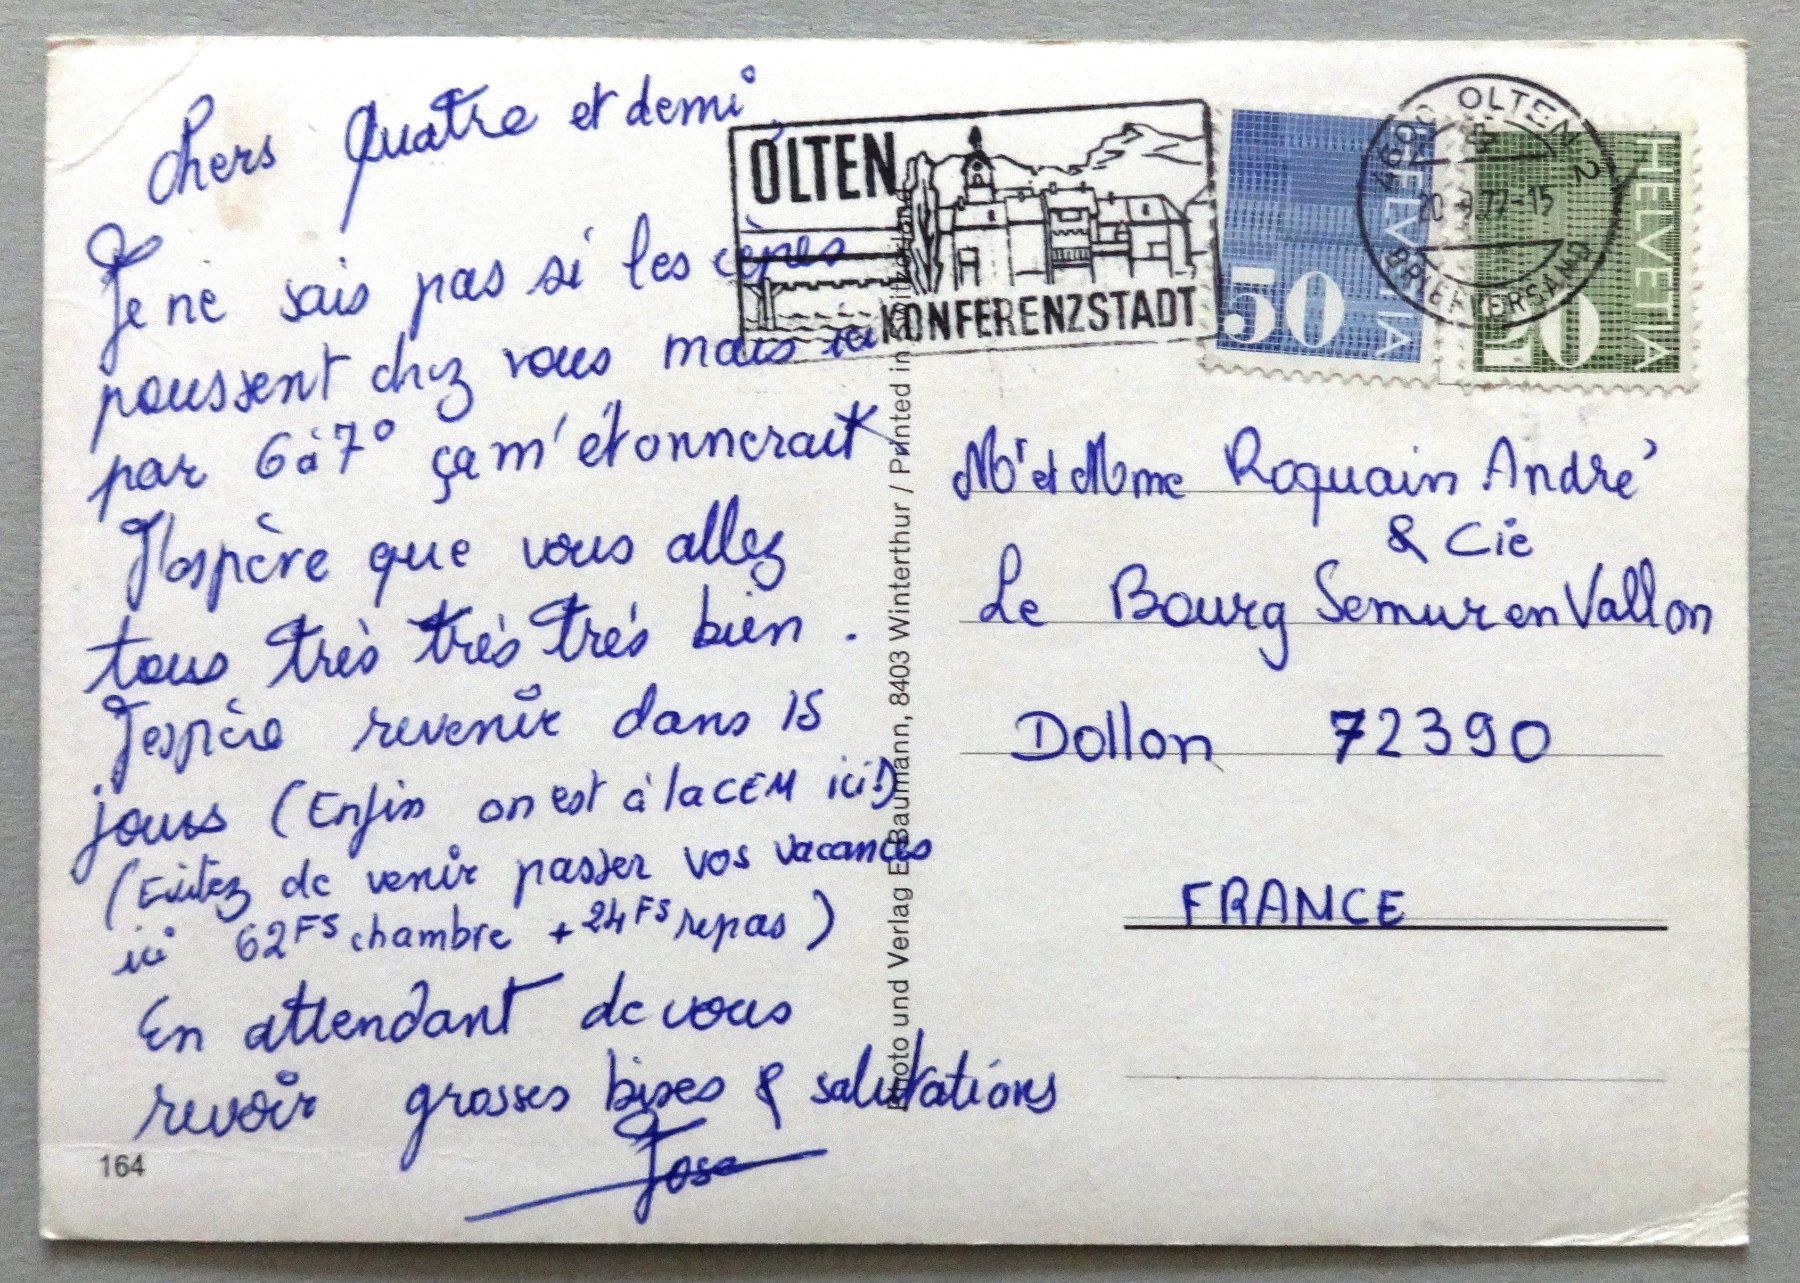 Chers Quatre et demi
Je ne sais pas si les cèpes
poussent chez vous mais ici
par 6 à 7° ça m'étonnerait
J'espère que vous allez
tous très très très bien.
J'espère revenir dans 15
jours (Enfin on est à la CEM ici!)
(Evitez de venir passer vos vacances
ici 62FS chambre + 24FS repas)
En attendant de vous
revoir grosses bises & salutations
Jose
164
Photo und Verlag E. Baumann, 8403 Winterthur / Printed in Switzerland
OLTEN
KONFERENZSTADT
HELVETIA
50
HELVETIA
4600 OLTEN 2
BRIEFVERSAND
Mr et Mme Roquain André
& Cie
Le Bourg Semur en Vallon
Dollon 72390
FRANCE